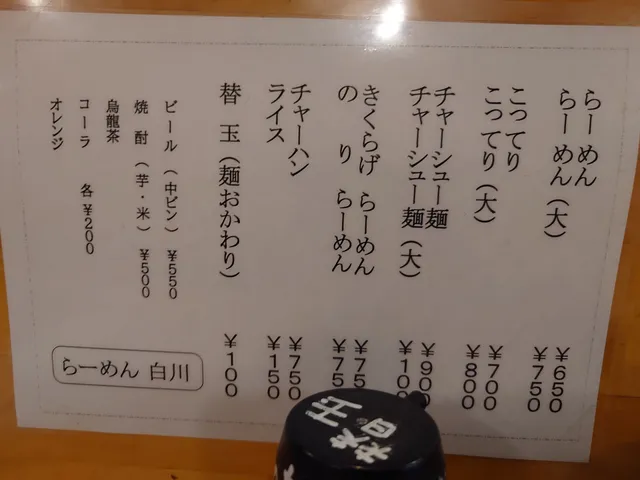 らーめん ￥650
らーめん（大） ￥750
こってり ￥700
こってり（大） ￥800
チャーシュー麺 ￥900
チャーシュー麺（大）
きくらげ らーめん
のり らーめん
チャーハン ￥750
ライス ￥150
替玉（麺おかわり） ￥100
ビール（中ビン） ￥550
焼酎（芋・米） ￥500
烏龍茶
コーラ 各￥200
オレンジ
らーめん 白川